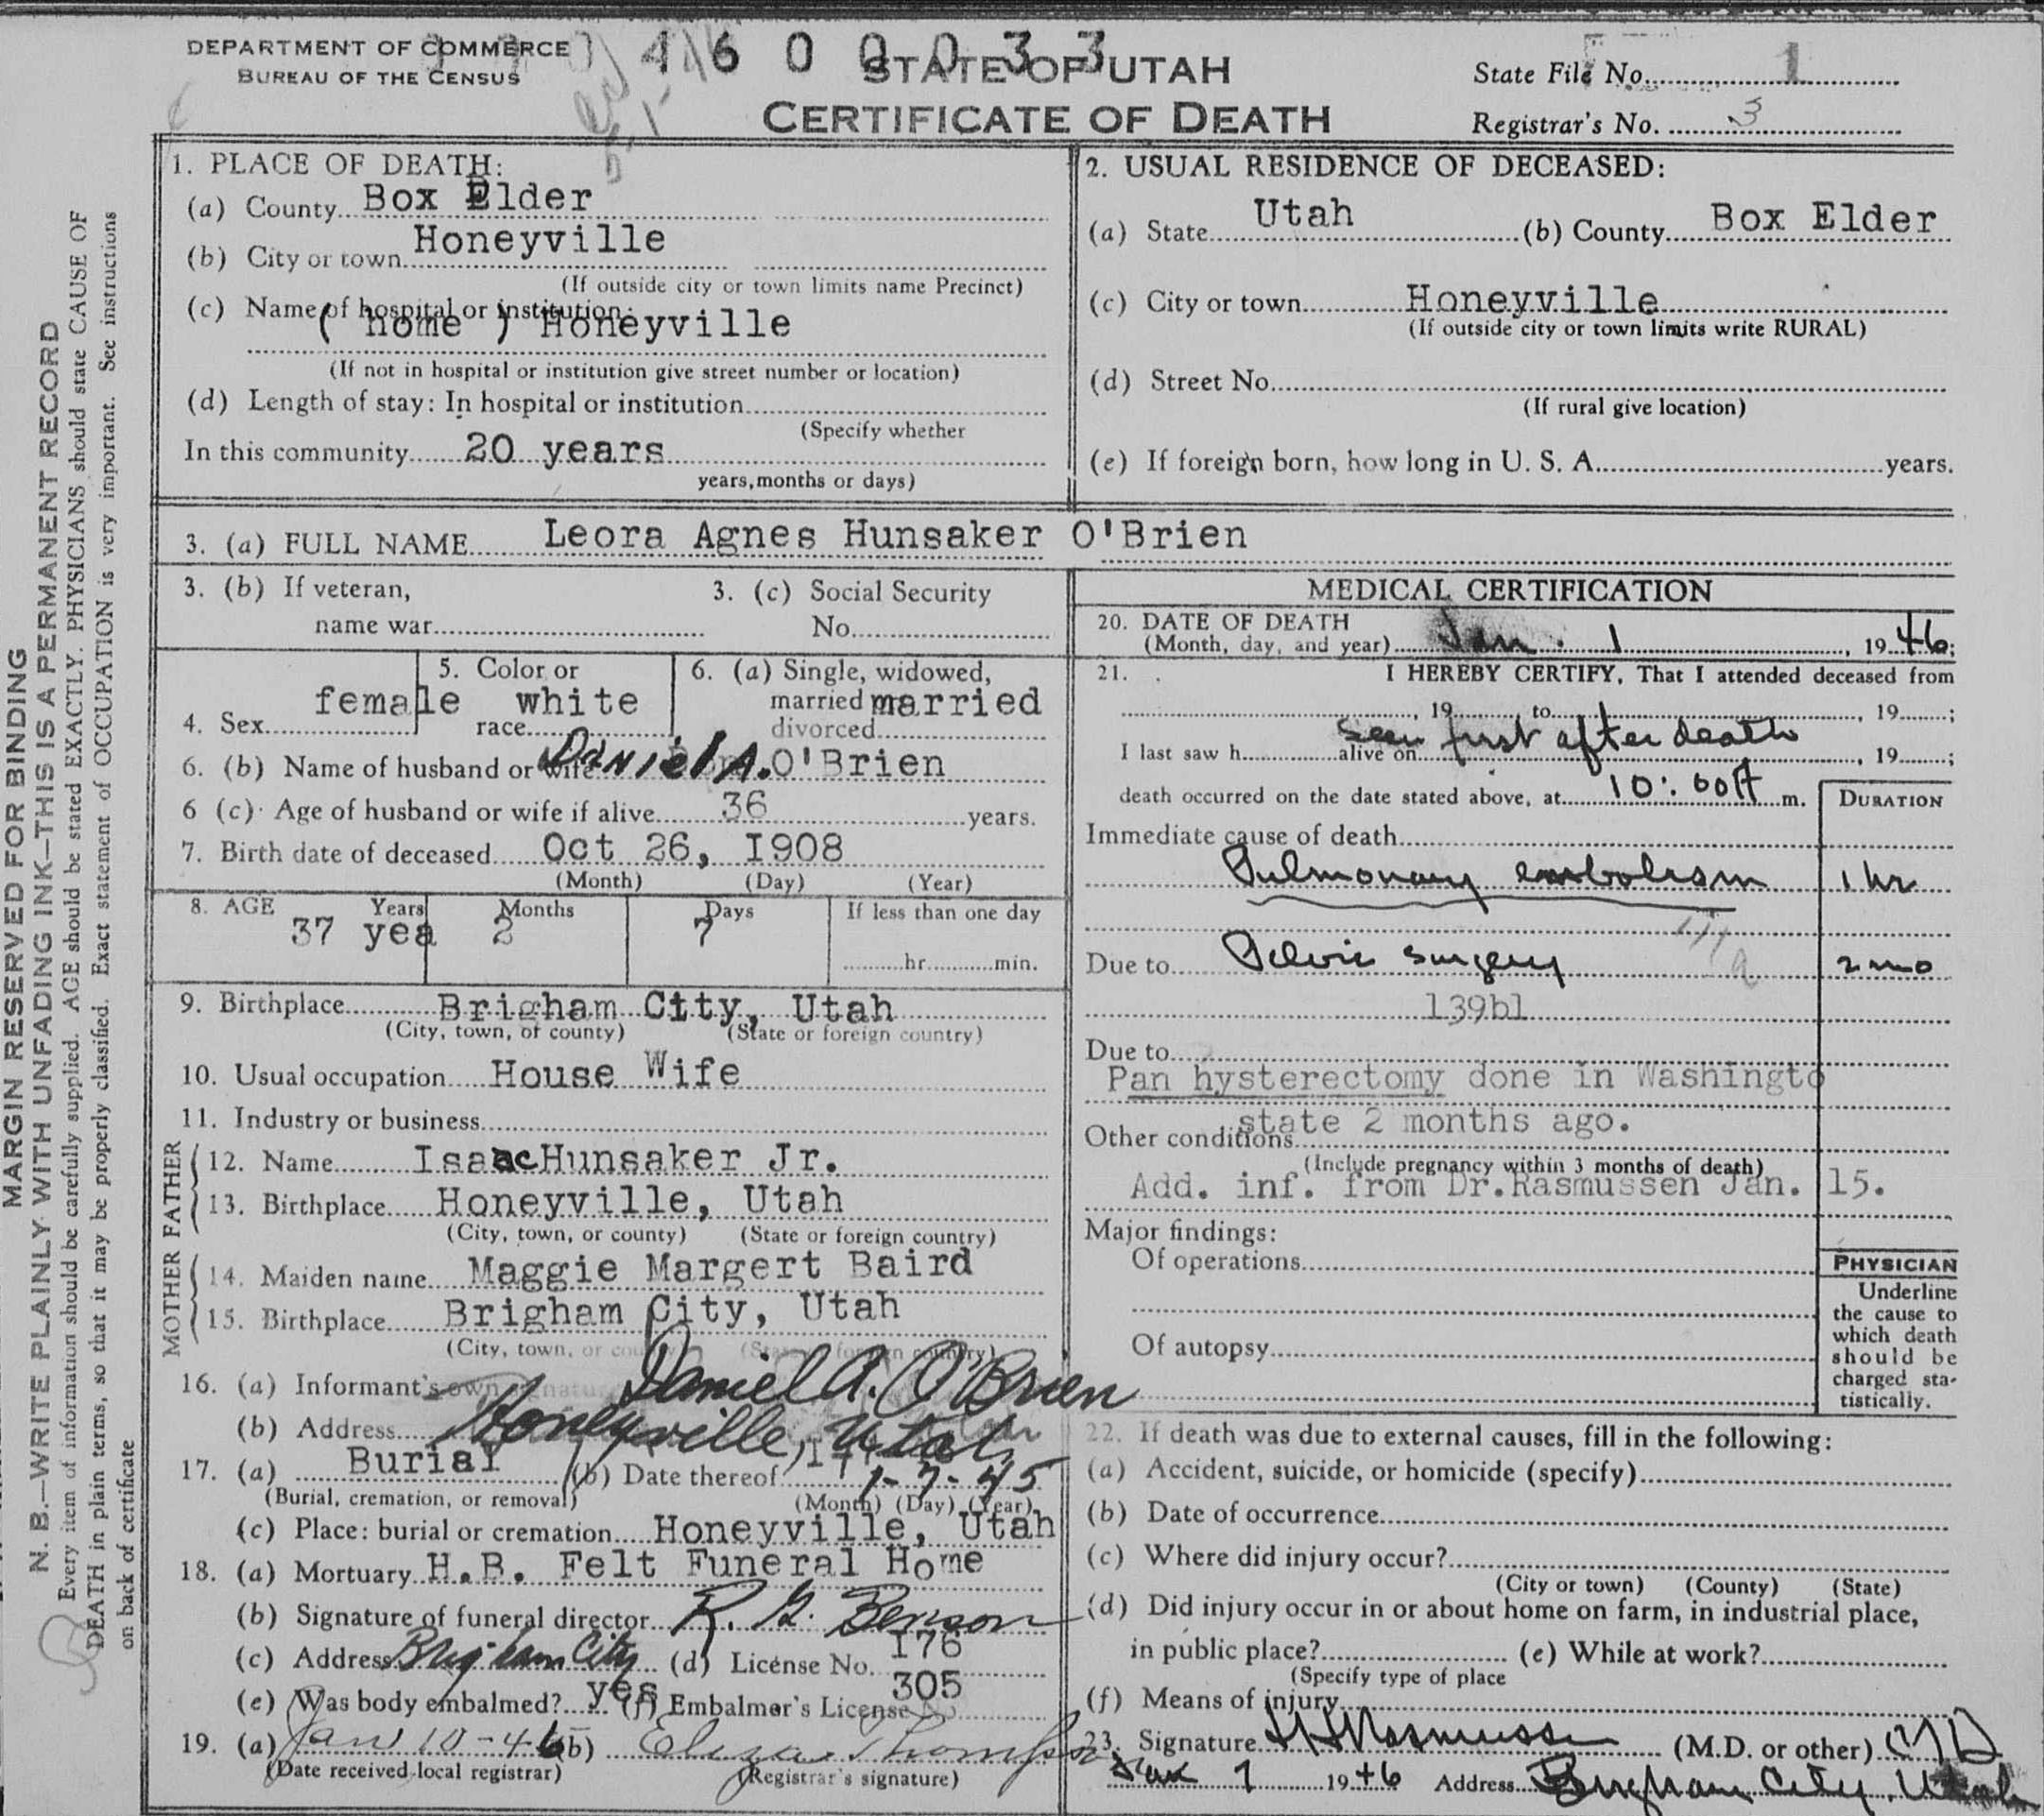 DEPARTMENT OF COMMERCE
BUREAU OF THE CENSUS
4600033
STATE OF UTAH
CERTIFICATE OF DEATH
State File No. 1
Registrar's No. 3
MARGIN RESERVED FOR BINDING
N. B.—WRITE PLAINLY WITH UNFADING INK—THIS IS A PERMANENT RECORD
Every item of information should be carefully supplied. AGE should be stated EXACTLY. PHYSICIANS should state CAUSE OF
DEATH in plain terms, so that it may be properly classified. Exact statement of OCCUPATION is very important. See instructions
on back of certificate
1. PLACE OF DEATH:
(a) County Box Elder
(b) City or town Honeyville
(If outside city or town limits name Precinct)
(c) Name of hospital or institution:
( home ) Honeyville
(If not in hospital or institution give street number or location)
(d) Length of stay: In hospital or institution
(Specify whether
In this community 20 years
years, months or days)
2. USUAL RESIDENCE OF DECEASED:
(a) State Utah (b) County Box Elder
(c) City or town Honeyville
(If outside city or town limits write RURAL)
(d) Street No.
(If rural give location)
(e) If foreign born, how long in U. S. A. years.
3. (a) FULL NAME Leora Agnes Hunsaker O'Brien
3. (b) If veteran,
name war
3. (c) Social Security
No.
4. Sex female
5. Color or
race white
6. (a) Single, widowed,
married married
divorced
6. (b) Name of husband or wife Daniel A. O'Brien
6 (c) Age of husband or wife if alive 36 years.
7. Birth date of deceased Oct 26, 1908
(Month) (Day) (Year)
8. AGE Years Months Days If less than one day
37 yea 2 7
hr. min.
9. Birthplace Brigham City, Utah
(City, town, or county) (State or foreign country)
10. Usual occupation House Wife
11. Industry or business
FATHER
12. Name Isaac Hunsaker Jr.
13. Birthplace Honeyville, Utah
(City, town, or county) (State or foreign country)
MOTHER
14. Maiden name Maggie Margert Baird
15. Birthplace Brigham City, Utah
(City, town, or county) (State or foreign country)
16. (a) Informant's own signature Daniel A. O'Brien
(b) Address Honeyville, Utah
17. (a) Burial (b) Date thereof 1-7-45
(Burial, cremation, or removal) (Month) (Day) (Year)
(c) Place: burial or cremation Honeyville, Utah
18. (a) Mortuary H.B. Felt Funeral Home
(b) Signature of funeral director R. G. Benson
(c) Address Brigham City (d) License No. 176
(e) Was body embalmed? yes (f) Embalmer's License No. 305
19. (a) Jan 10-46 (b) Eliza Thompson
(Date received local registrar) (Registrar's signature)
MEDICAL CERTIFICATION
20. DATE OF DEATH
(Month, day, and year) Jan. 1, 1946;
21. I HEREBY CERTIFY, That I attended deceased from
, 19 to , 19 ;
seen first after death
I last saw h alive on , 19 ;
death occurred on the date stated above, at 10:00A m.
DURATION
Immediate cause of death
Pulmonary embolism 1 hr
Due to Pelvic surgery 2 mo
139b1
Due to
Pan hysterectomy done in Washingto
state 2 months ago.
Other conditions
(Include pregnancy within 3 months of death)
Add. inf. from Dr.Rasmussen Jan. 15.
Major findings:
Of operations
Of autopsy
PHYSICIAN
Underline
the cause to
which death
should be
charged sta-
tistically.
22. If death was due to external causes, fill in the following:
(a) Accident, suicide, or homicide (specify)
(b) Date of occurrence
(c) Where did injury occur?
(City or town) (County) (State)
(d) Did injury occur in or about home on farm, in industrial place,
in public place? (e) While at work?
(Specify type of place
(f) Means of injury
23. Signature Rasmussen (M.D. or other) MD
Jan 7 1946 Address Brigham City, Utah